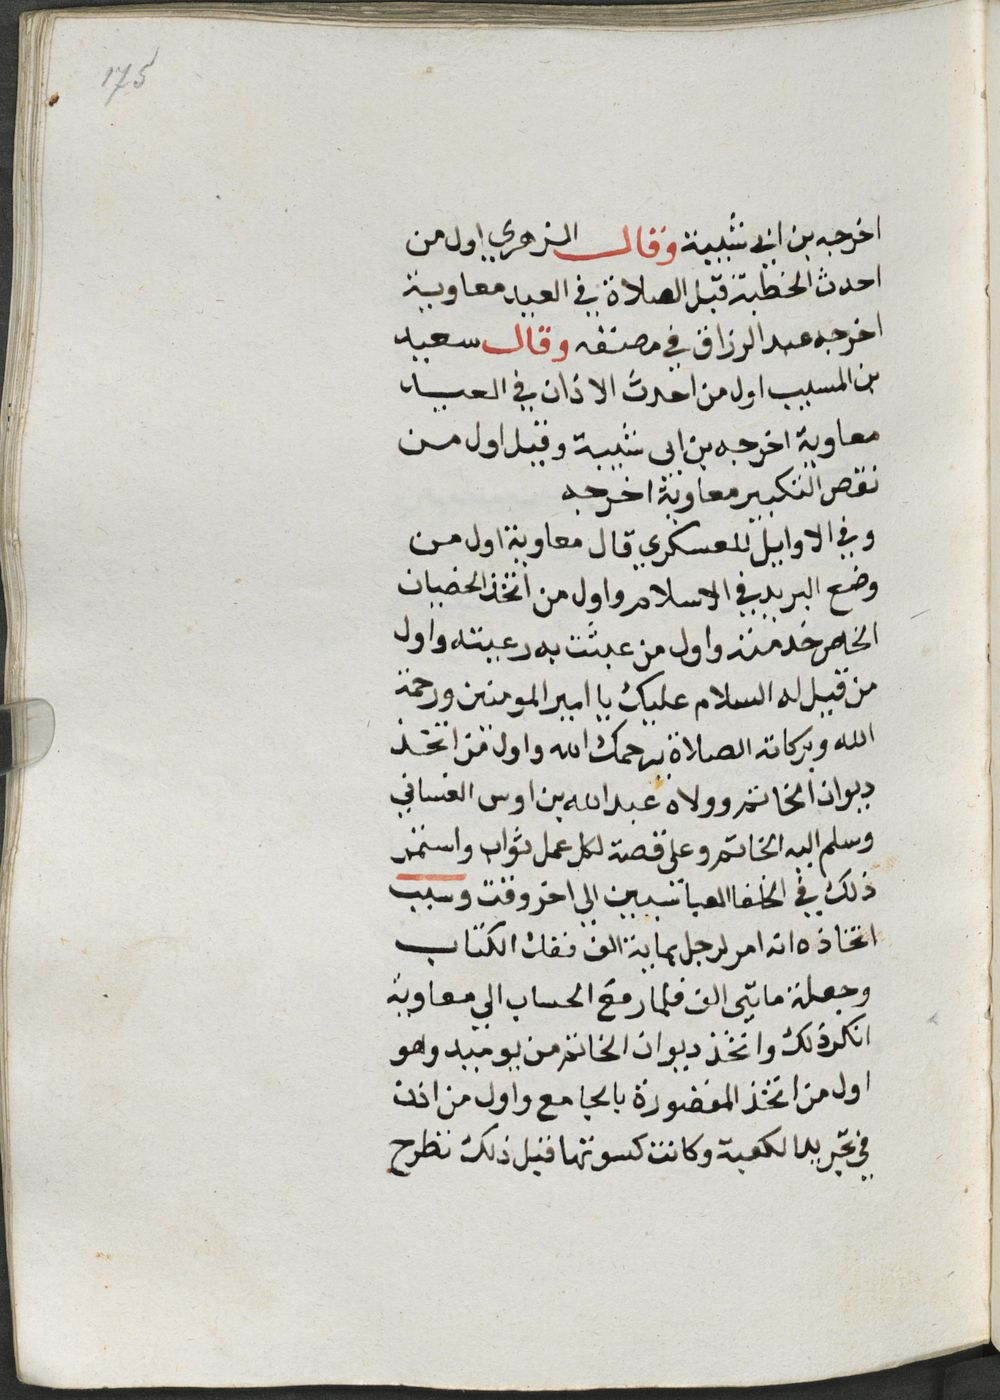 175
اخرجه بن ابي شيبة وقال الزهري اول من
احدث الخطبة قبل الصلاة في العيد معاوية
اخرجه عبد الرزاق في مصنفه وقال سعيد
بن المسيب اول من احدث الاذان في العيد
معاوية اخرجه بن ابي شيبة وقيل اول من
نقص التكبير معاوية اخرجه
وفي الاوايل للعسكري قال معاوية اول من
وضع البريد في الاسلام واول من اتخذ الخصيان
الخاص خدمته واول من عبثت به رعيته واول
من قيل له السلام عليك يا امير المومنين ورحمة
الله وبركاته الصلاة يرحمك الله واول من اتخذ
ديوان الخاتم وولاه عبد الله بن اوس الغساني
وسلم اليه الخاتم وعلى فصه لكل عمل ثواب واستمر
ذلك في الخلفا العباسيين الى اخر وقت وسبب
اتخاذه انه امر لرجل بماية الف ففك الكتاب
وجعله مايتي الف فلما رفع الحساب الي معاوية
انكر ذلك واتخذ ديوان الخاتم من يوميد وهو
اول من اتخذ المقصورة بالجامع واول من اذن
في تجريد الكعبة وكانت كسوتها قبل ذلك تطرح